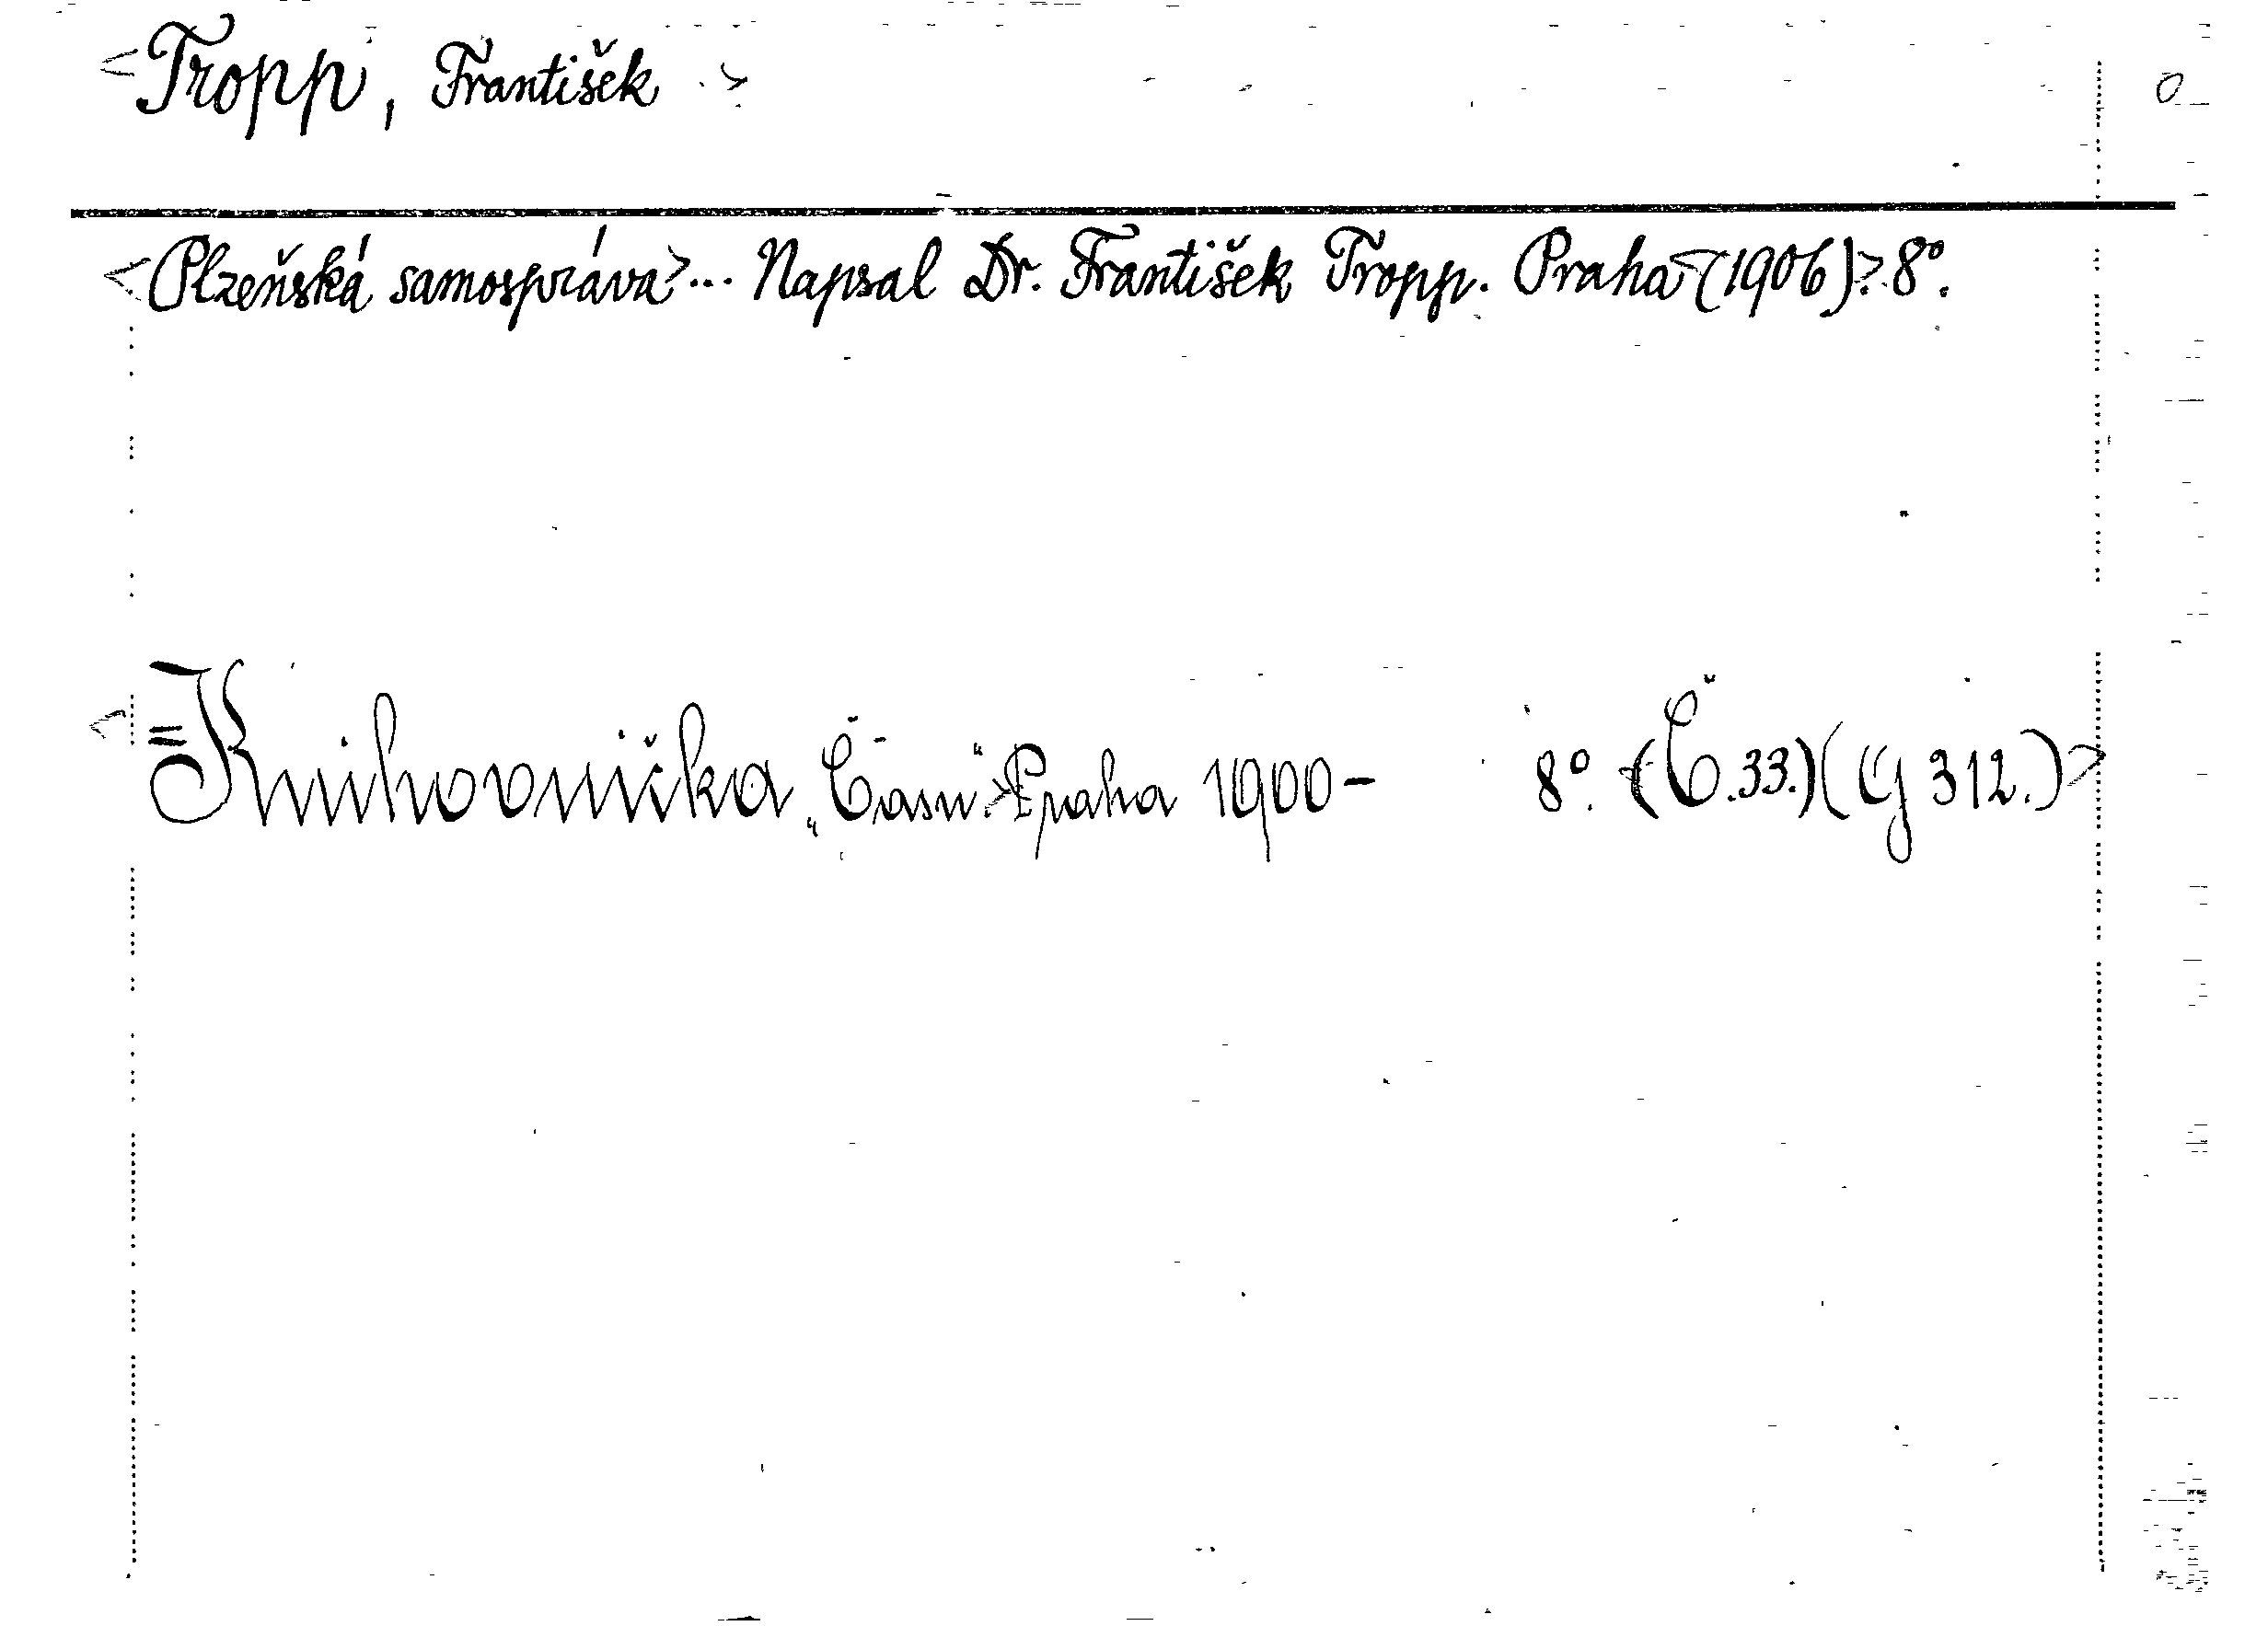 <Tropp, František> 0
<Plzeňská samospráva>... Napsal Dr. František Tropp. Praha <(1906)>. 8°.
<=Knihovnička „Času“.> Praha 1900- 8°. <(Č. 33.) (G 312.)>